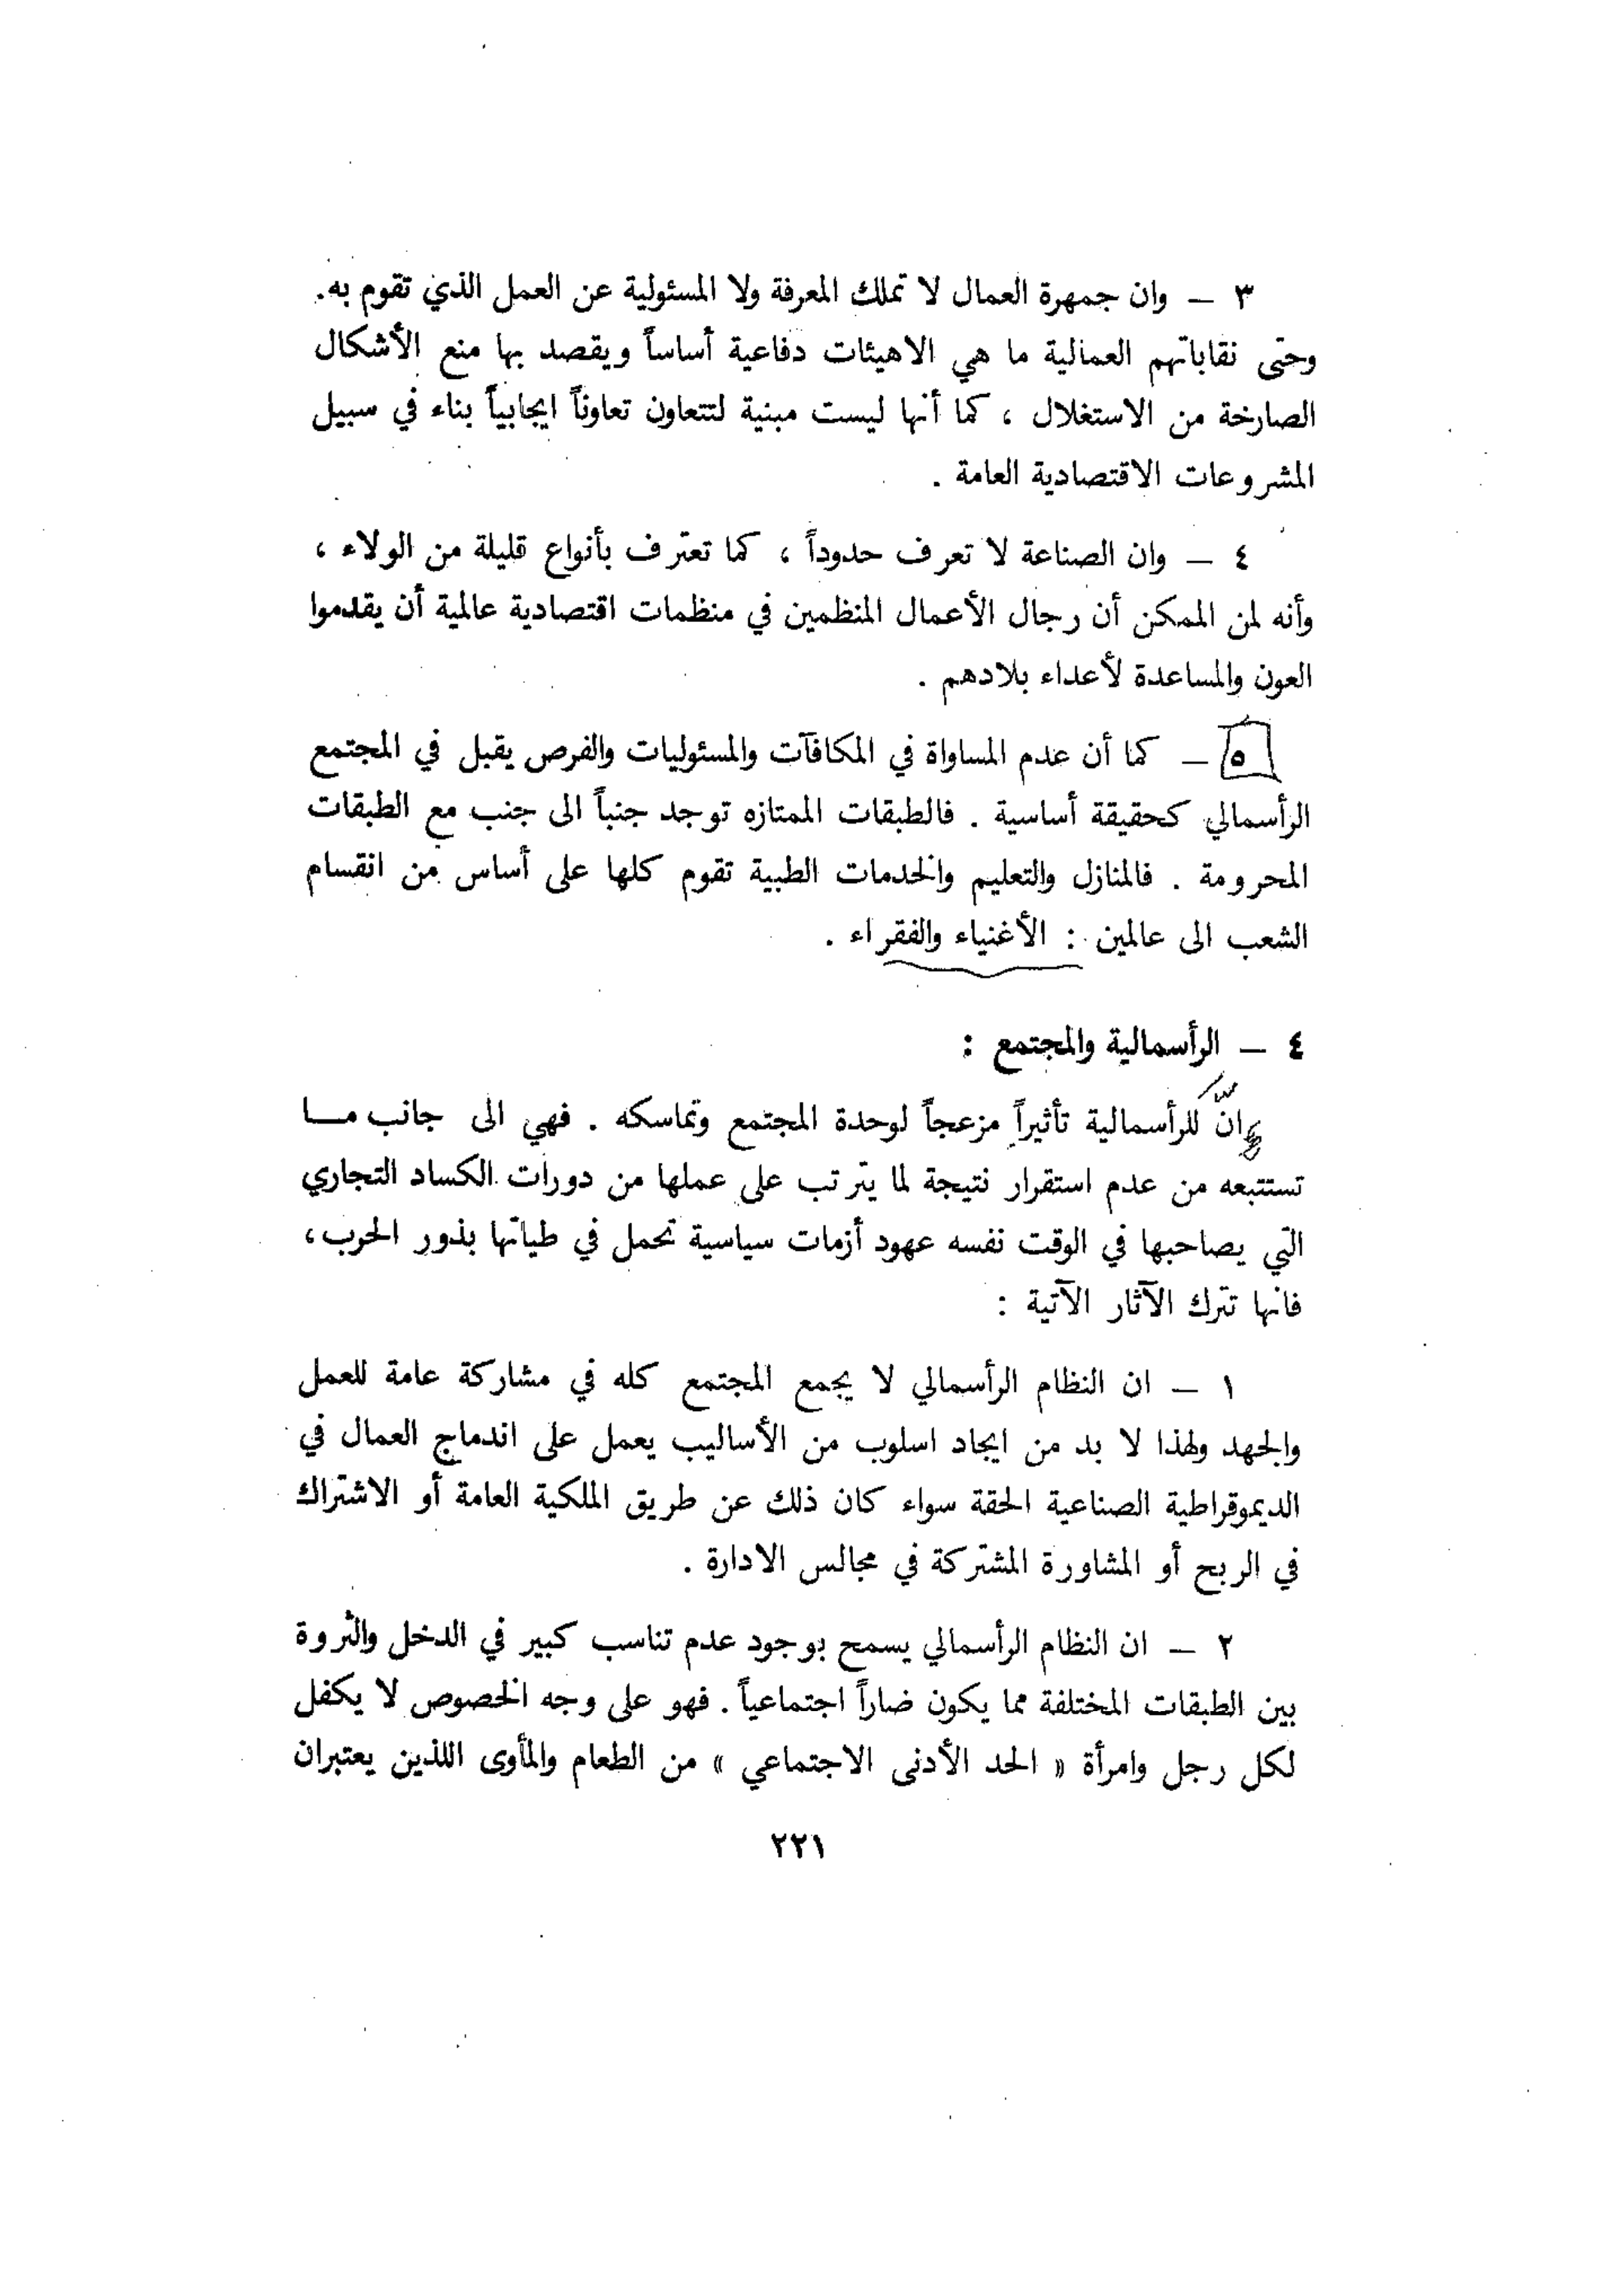 ٣ – وان جمهرة العمال لا تملك المعرفة ولا المسئولية عن العمل الذي تقوم به.
وحتى نقاباتهم العمالية ما هي الاهيئات دفاعية أساساً ويقصد بها منع الأشكال
الصارخة من الاستغلال ، كما أنها ليست مبنية لتتعاون تعاوناً ايجابياً بناء في سبيل
المشروعات الاقتصادية العامة .
٤ – وان الصناعة لا تعرف حدوداً ، كما تعترف بأنواع قليلة من الولاء ،
وأنه لمن الممكن أن رجال الأعمال المنظمين في منظمات اقتصادية عالمية أن يقدموا
العون والمساعدة لأعداء بلادهم .
٥ – كما أن عدم المساواة في المكافآت والمسئوليات والفرص يقبل في المجتمع
الرأسمالي كحقيقة أساسية . فالطبقات الممتازه توجد جنباً الى جنب مع الطبقات
المحرومة . فالمنازل والتعليم والخدمات الطبية تقوم كلها على أساس من انقسام
الشعب الى عالمين : الأغنياء والفقراء .
٤ – الرأسمالية والمجتمع :
انّ للرأسمالية تأثيراً مزعجاً لوحدة المجتمع وتماسكه . فهي الى جانب مــا
تستتبعه من عدم استقرار نتيجة لما يترتب على عملها من دورات الكساد التجاري
التي يصاحبها في الوقت نفسه عهود أزمات سياسية تحمل في طياتها بذور الحرب،
فانها تترك الآثار الآتية :
١ – ان النظام الرأسمالي لا يجمع المجتمع كله في مشاركة عامة للعمل
والجهد ولهذا لا بد من ايجاد اسلوب من الأساليب يعمل على اندماج العمال في
الديموقراطية الصناعية الحقة سواء كان ذلك عن طريق الملكية العامة أو الاشتراك
في الربح أو المشاورة المشتركة في مجالس الادارة .
٢ – ان النظام الرأسمالي يسمح بوجود عدم تناسب كبير في الدخل والثروة
بين الطبقات المختلفة مما يكون ضاراً اجتماعياً . فهو على وجه الخصوص لا يكفل
لكل رجل وامرأة « الحد الأدنى الاجتماعي » من الطعام والمأوى اللذين يعتبران
٢٢١